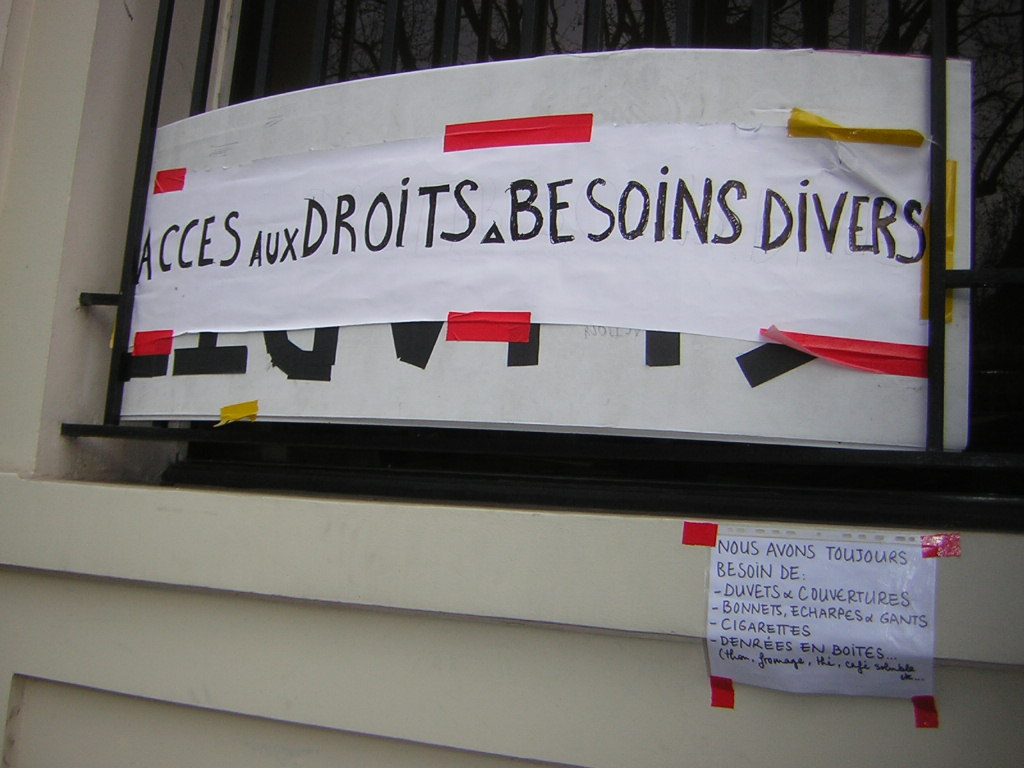 ACCES AUX DROITS & BESOINS DIVERS
NOUS AVONS TOUJOURS
BESOIN DE:
- DUVETS & COUVERTURES
- BONNETS, ECHARPES & GANTS
- CIGARETTES
- DENRÉES EN BOITES...
(thon, fromage, thé, café soluble
etc...